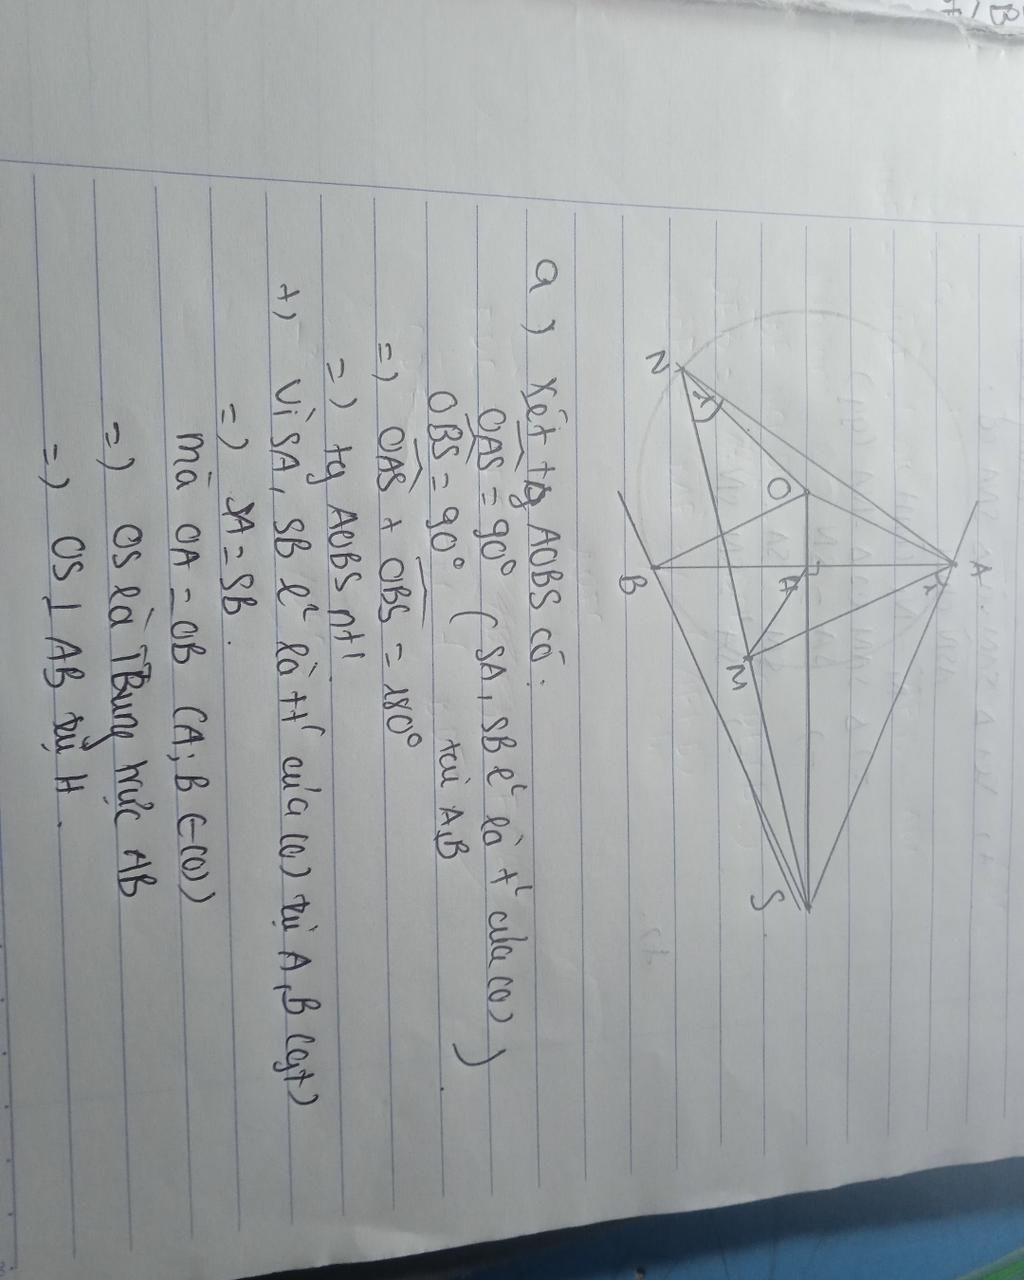 A
N
O
H
M
B
S
a) Xét tg AOBS có:
OAS = 90° (SA, SB l² là t² của (O)
OBS = 90° tại A,B )
=) OAS + OBS = 180°
=) tg AOBS nt
+) Vì SA, SB l² là tt của (O) tại A, B (gt)
=) SA = SB.
mà OA = OB (A; B ∈ (O))
=) OS là TBung trực AB
=) OS ⊥ AB tại H.